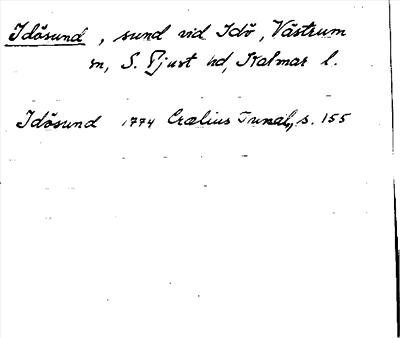 Idösund, sund vid Idö, Västrum
sn, S. Tjust hd, Kalmar l.
Idösund 1774 Crælius Tunal, s. 155